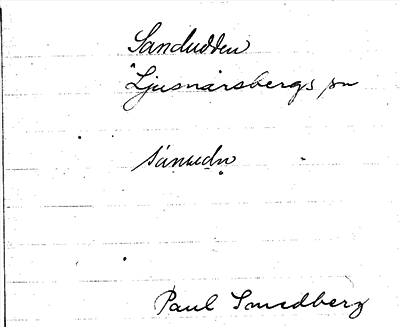 Sandudden
Ljusnarsbergs sn
sánudn
Paul Smedberg